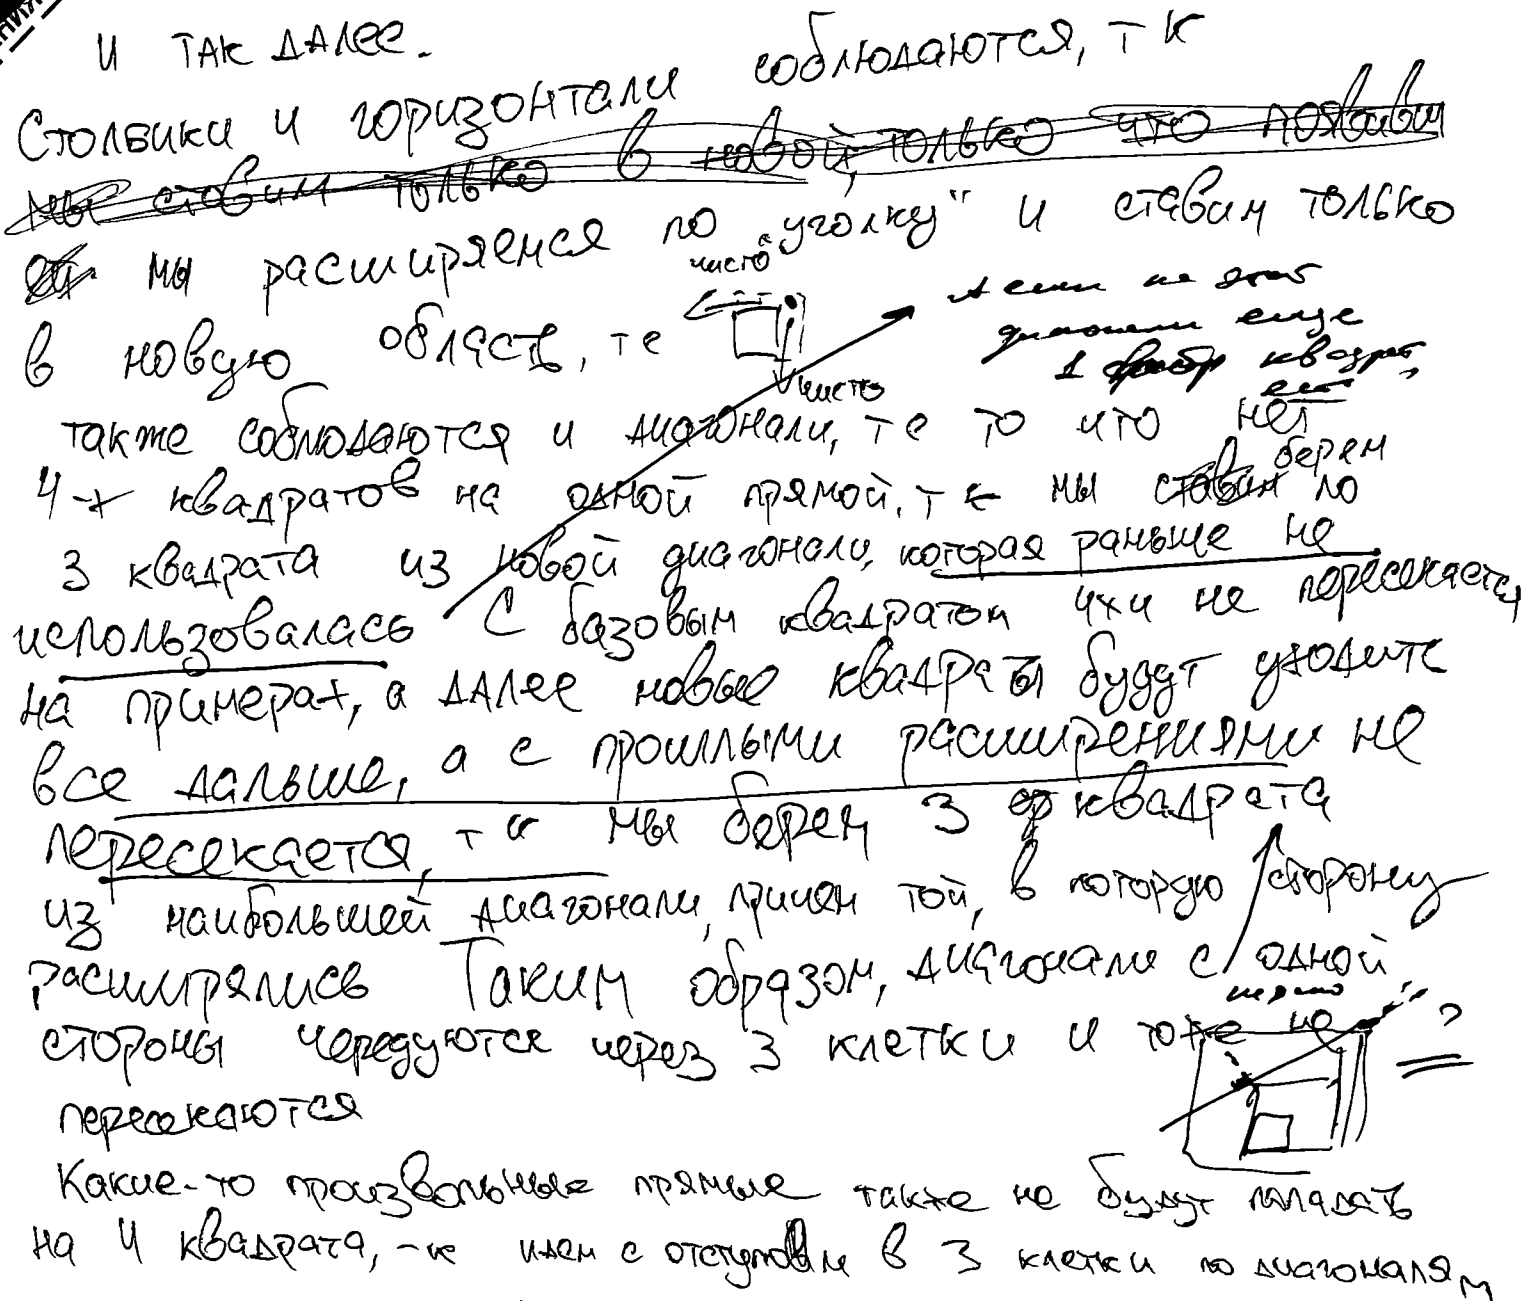 и так далее.
Столбики и горизонтали соблюдаются, т к
мы ставим только в новой, только что появивш
мы расширяемся по „уголку" и ставим только
чисто
А если на этой
в новую область, те
диагонали еще
1 квадрат,
чисто
есть
также соблюдаются и диагонали, те то что нет
4-х квадратов на одной прямой, т к мы ставим берем по
3 квадрата из новой диагонали, которая раньше не
использовалась С базовым квадратом 4х4 не пересекается
на примерах, а далее новые квадраты будут уходить
все дальше, а с прошлыми расширениями не
пересекается, т к мы берем 3 квадрата
из наибольшей диагонали, причем той, в которую сторону
расширялись Таким образом, диагонали с одной
стороны чередуются через 3 клетки и тоже не
?
пересекаются
Какие-то произвольные прямые также не будут попадать
на 4 квадрата, т-к идем с отступом в 3 клетки по диагоналям